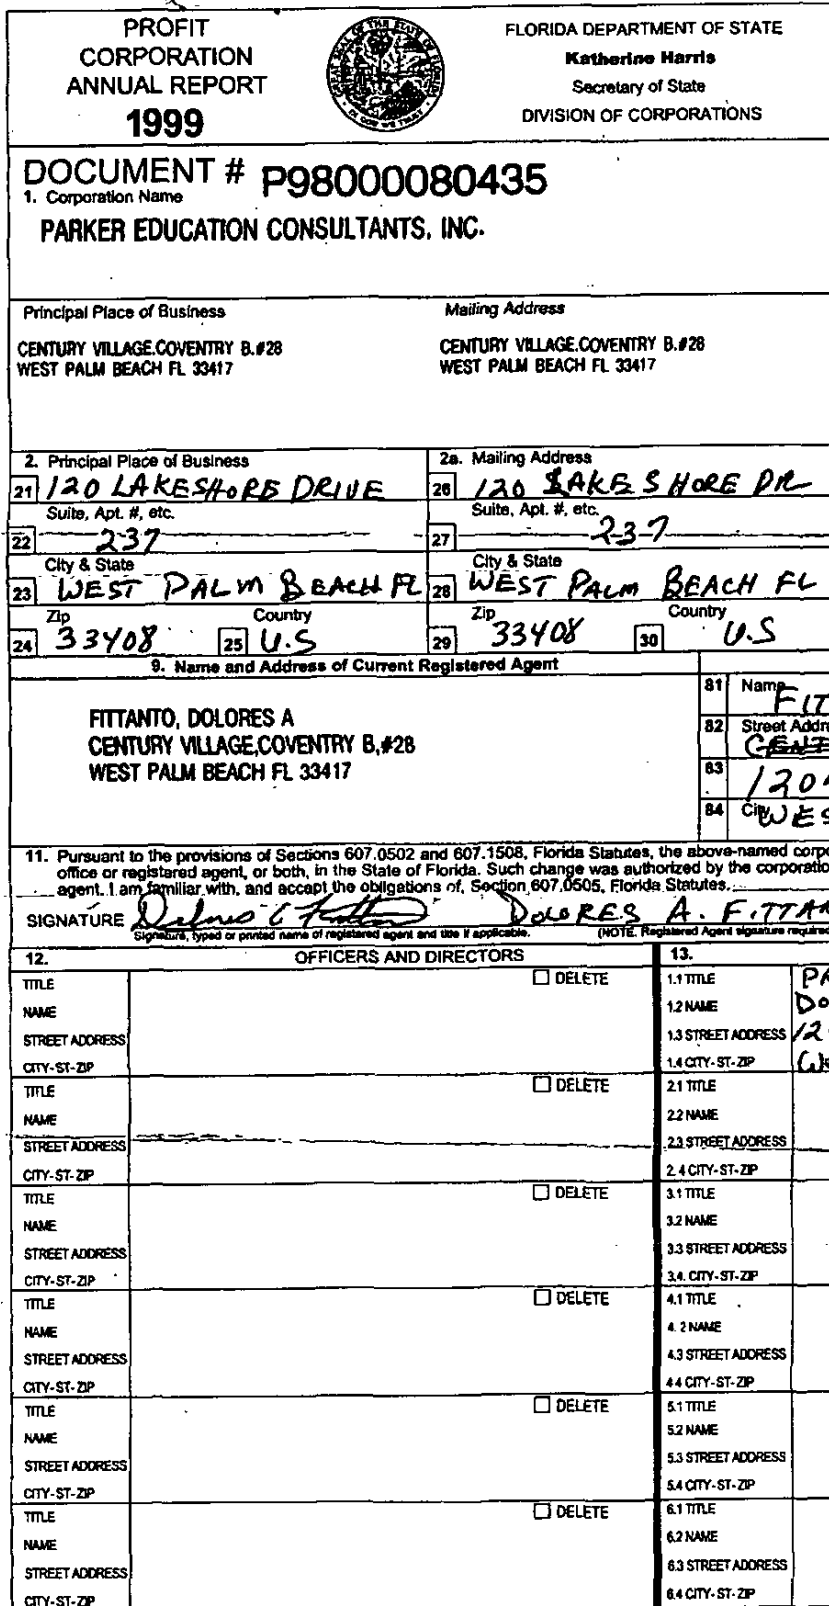 PROFIT
CORPORATION
ANNUAL REPORT
1999
FLORIDA DEPARTMENT OF STATE
Katherine Harris
Secretary of State
DIVISION OF CORPORATIONS
DOCUMENT # P98000080435
1. Corporation Name
PARKER EDUCATION CONSULTANTS, INC.
Principal Place of Business
CENTURY VILLAGE,COVENTRY B,#28
WEST PALM BEACH FL 33417
Mailing Address
CENTURY VILLAGE,COVENTRY B,#28
WEST PALM BEACH FL 33417
2. Principal Place of Business
21 120 LAKESHORE DRIVE
Suite, Apt. #, etc.
22 237
City & State
23 WEST PALM BEACH FL
Zip Country
24 33408 25 U.S
2a. Mailing Address
26 120 LAKE SHORE DR
Suite, Apt. #, etc.
27 237
City & State
28 WEST PALM BEACH FL
Zip Country
29 33408 30 U.S
9. Name and Address of Current Registered Agent
FITTANTO, DOLORES A
CENTURY VILLAGE,COVENTRY B,#28
WEST PALM BEACH FL 33417
81 Name
FIT
82 Street Addre
CENT
83 120
84 City
WES
11. Pursuant to the provisions of Sections 607.0502 and 607.1508, Florida Statutes, the above-named corpo
office or registered agent, or both, in the State of Florida. Such change was authorized by the corporatio
agent. I am familiar with, and accept the obligations of, Section 607.0505, Florida Statutes.
SIGNATURE DOLORES A. FITTAN
Signature, typed or printed name of registered agent and title if applicable. (NOTE. Registered Agent signature required
12. OFFICERS AND DIRECTORS
TITLE DELETE
NAME
STREET ADDRESS
CITY-ST-ZIP
TITLE DELETE
NAME
STREET ADDRESS
CITY-ST-ZIP
TITLE DELETE
NAME
STREET ADDRESS
CITY-ST-ZIP
TITLE DELETE
NAME
STREET ADDRESS
CITY-ST-ZIP
TITLE DELETE
NAME
STREET ADDRESS
CITY-ST-ZIP
TITLE DELETE
NAME
STREET ADDRESS
CITY-ST-ZIP
13.
1.1 TITLE P
1.2 NAME Do
1.3 STREET ADDRESS 12
1.4 CITY-ST-ZIP We
2.1 TITLE
2.2 NAME
2.3 STREET ADDRESS
2.4 CITY-ST-ZIP
3.1 TITLE
3.2 NAME
3.3 STREET ADDRESS
3.4. CITY-ST-ZIP
4.1 TITLE
4.2 NAME
4.3 STREET ADDRESS
4.4 CITY-ST-ZIP
5.1 TITLE
5.2 NAME
5.3 STREET ADDRESS
5.4 CITY-ST-ZIP
6.1 TITLE
6.2 NAME
6.3 STREET ADDRESS
6.4 CITY-ST-ZIP